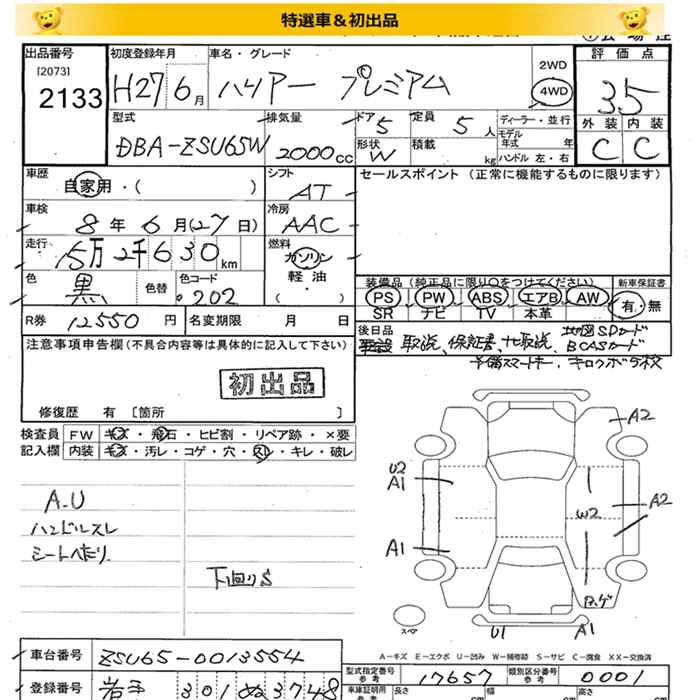 特選車＆初出品
出品番号 [2073] 2133
初度登録年月 H27 6月
車名・グレード ハリアー プレミアム
2WD 4WD
評価点 3.5
外装 内装
C C
型式 DBA-ZSU65W
排気量 2000cc
ドア 5 定員 5人
形状 W 積載 kg
ディーラー・並行
モデル年式 年式
ハンドル 左・右
車歴 自家用・( )
シフト AT
セールスポイント (正常に機能するものに限ります)
車検 8年6月(27日)
冷房 AAC
走行 15万2千630km
燃料 ガソリン 軽油 ・( )
色 黒 色替 色コード 202
装備品(純正品に限り○をつけてください) 新車保証書
PS PW ABS エアB AW 有・無
SR ナビ TV 本革
R券 12550円 名変期限 月 日
後日品 取説、保証書、ナビ取説、地図SDカード
BCASカード
予備スマートキー、キロクボ多枚
注意事項申告欄(不具合内容等は具体的に記入して下さい)
初出品
修復歴 有 [箇所 ]
検査員 FW キズ・飛石・ヒビ割・リペア跡・×要
記入欄 内装 キズ・汚レ・コゲ・穴・スレ・キレ・破レ
A.U
ハンドルスレ
シートへたり
下回りS
A2
U2
A1
A2
W2
A1
スペア
U1 A1
A-キズ E-エクボ U-凹み W-補修跡 S-サビ C-腐食 XX-交換済
車台番号 ZSU65-0013554
型式指定番号 参考 17657 類別区分番号 参考 0001
登録番号 岩手 301 ぬ 3748
車庫証明用 参考 長さ cm 幅 cm 高さ cm